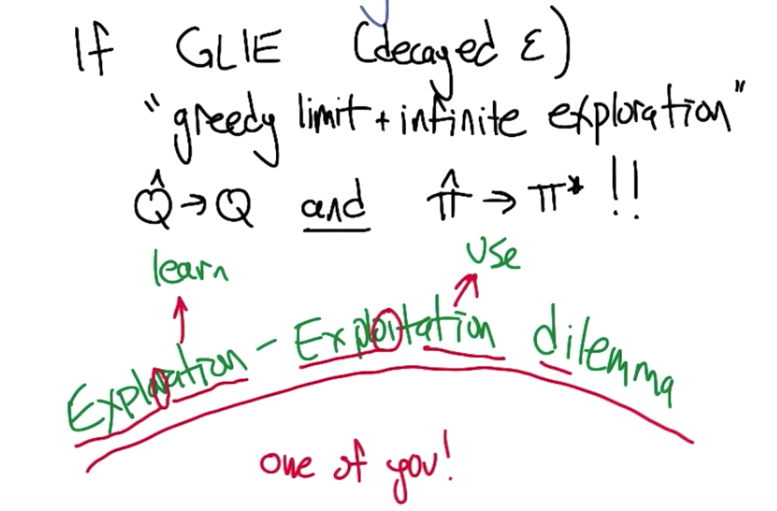 If GLIE (decayed ε)
"greedy limit + infinite exploration"
Q̂ → Q and π̂ → π* !!
learn
use
Exploration - Exploitation dilemma
one of you!